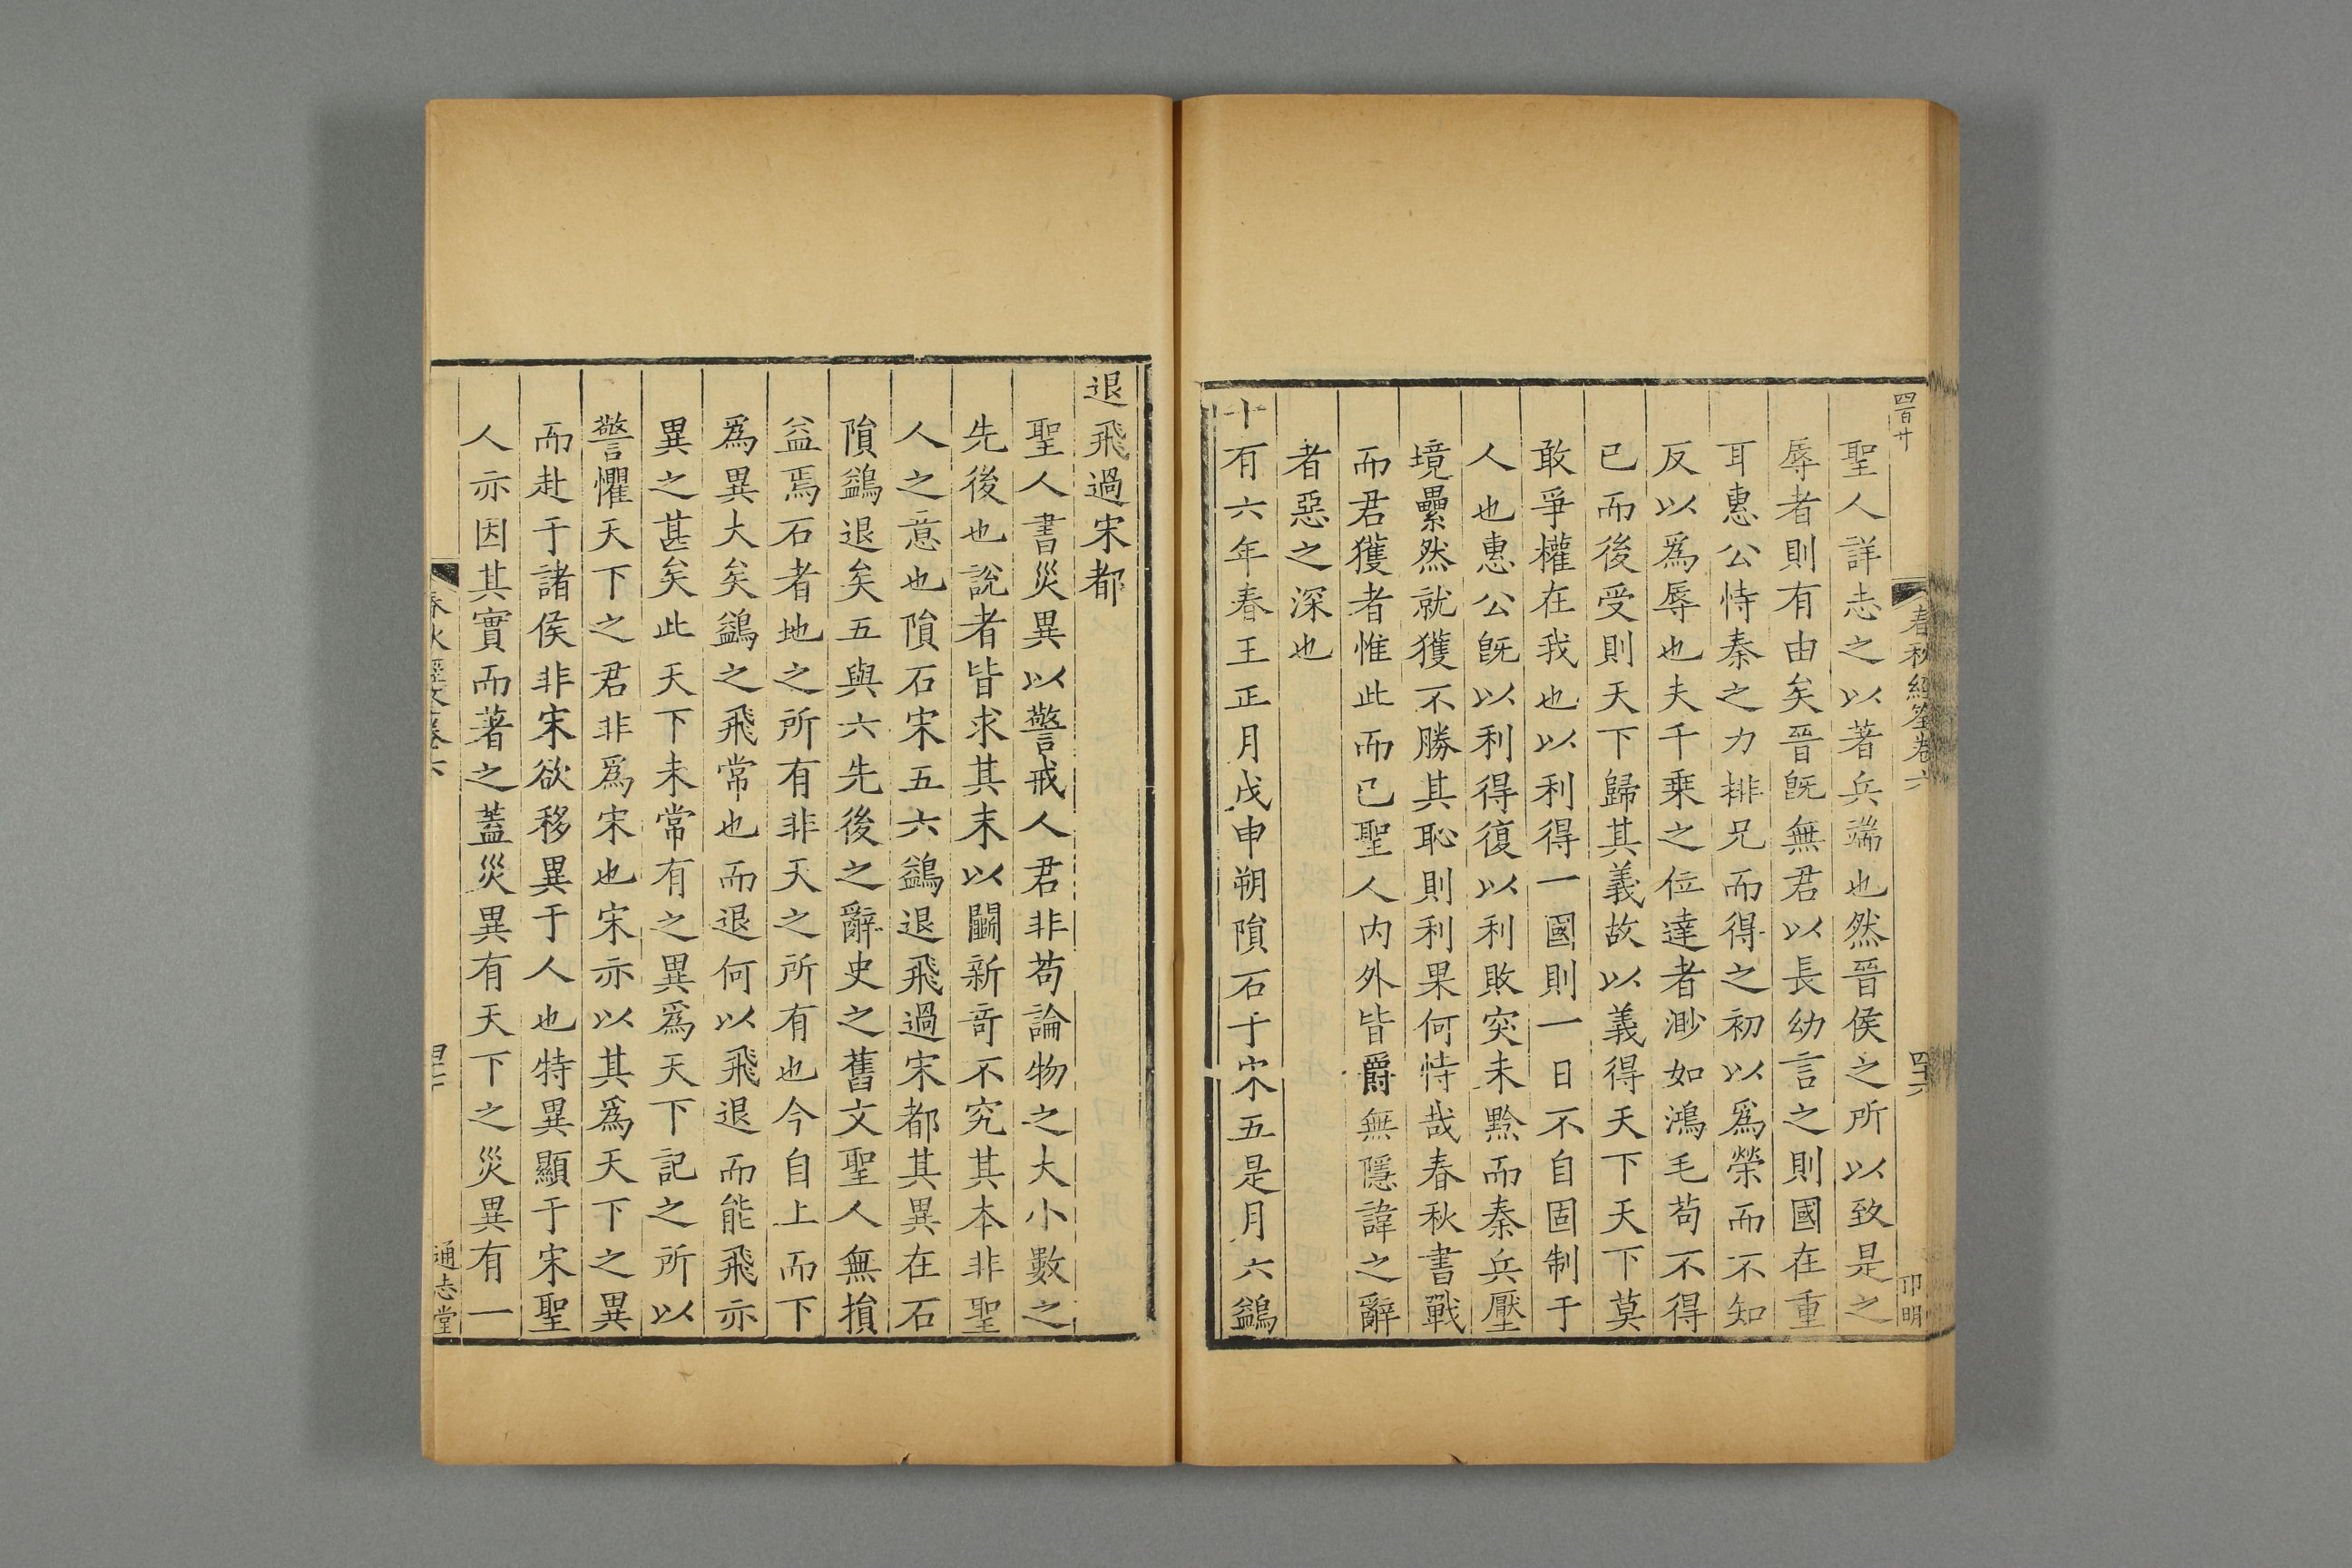 四百廿
春秋經筌卷六
四十六
卬明
聖人詳志之以著兵端也然晉侯之所以致是之
辱者則有由矣晉旣無君以長幼言之則國在重
耳惠公恃秦之力排兄而得之初以爲榮而不知
反以爲辱也夫千乗之位達者渺如鴻毛苟不得
已而後受則天下歸其義故以義得天下天下莫
敢爭權在我也以利得一國則一日不自固制于
人也惠公旣以利得復以利敗突未黔而秦兵壓
境纍然就獲不勝其恥則利果何恃哉春秋書戰
而君獲者惟此而已聖人内外皆爵無隱諱之辭
者惡之深也
十有六年春王正月戊申朔隕石于宋五是月六鷁
退飛過宋都
聖人書災異以警戒人君非苟論物之大小數之
先後也說者皆求其末以鬭新竒不究其本非聖
人之意也隕石宋五六鷁退飛過宋都其異在石
隕鷁退矣五與六先後之辭史之舊文聖人無損
益焉石者地之所有非天之所有也今自上而下
爲異大矣鷁之飛常也而退何以飛退而能飛亦
異之甚矣此天下未常有之異爲天下記之所以
警懼天下之君非爲宋也宋亦以其爲天下之異
而赴于諸侯非宋欲移異于人也特異顯于宋聖
人亦因其實而著之蓋災異有天下之災異有一
通志堂